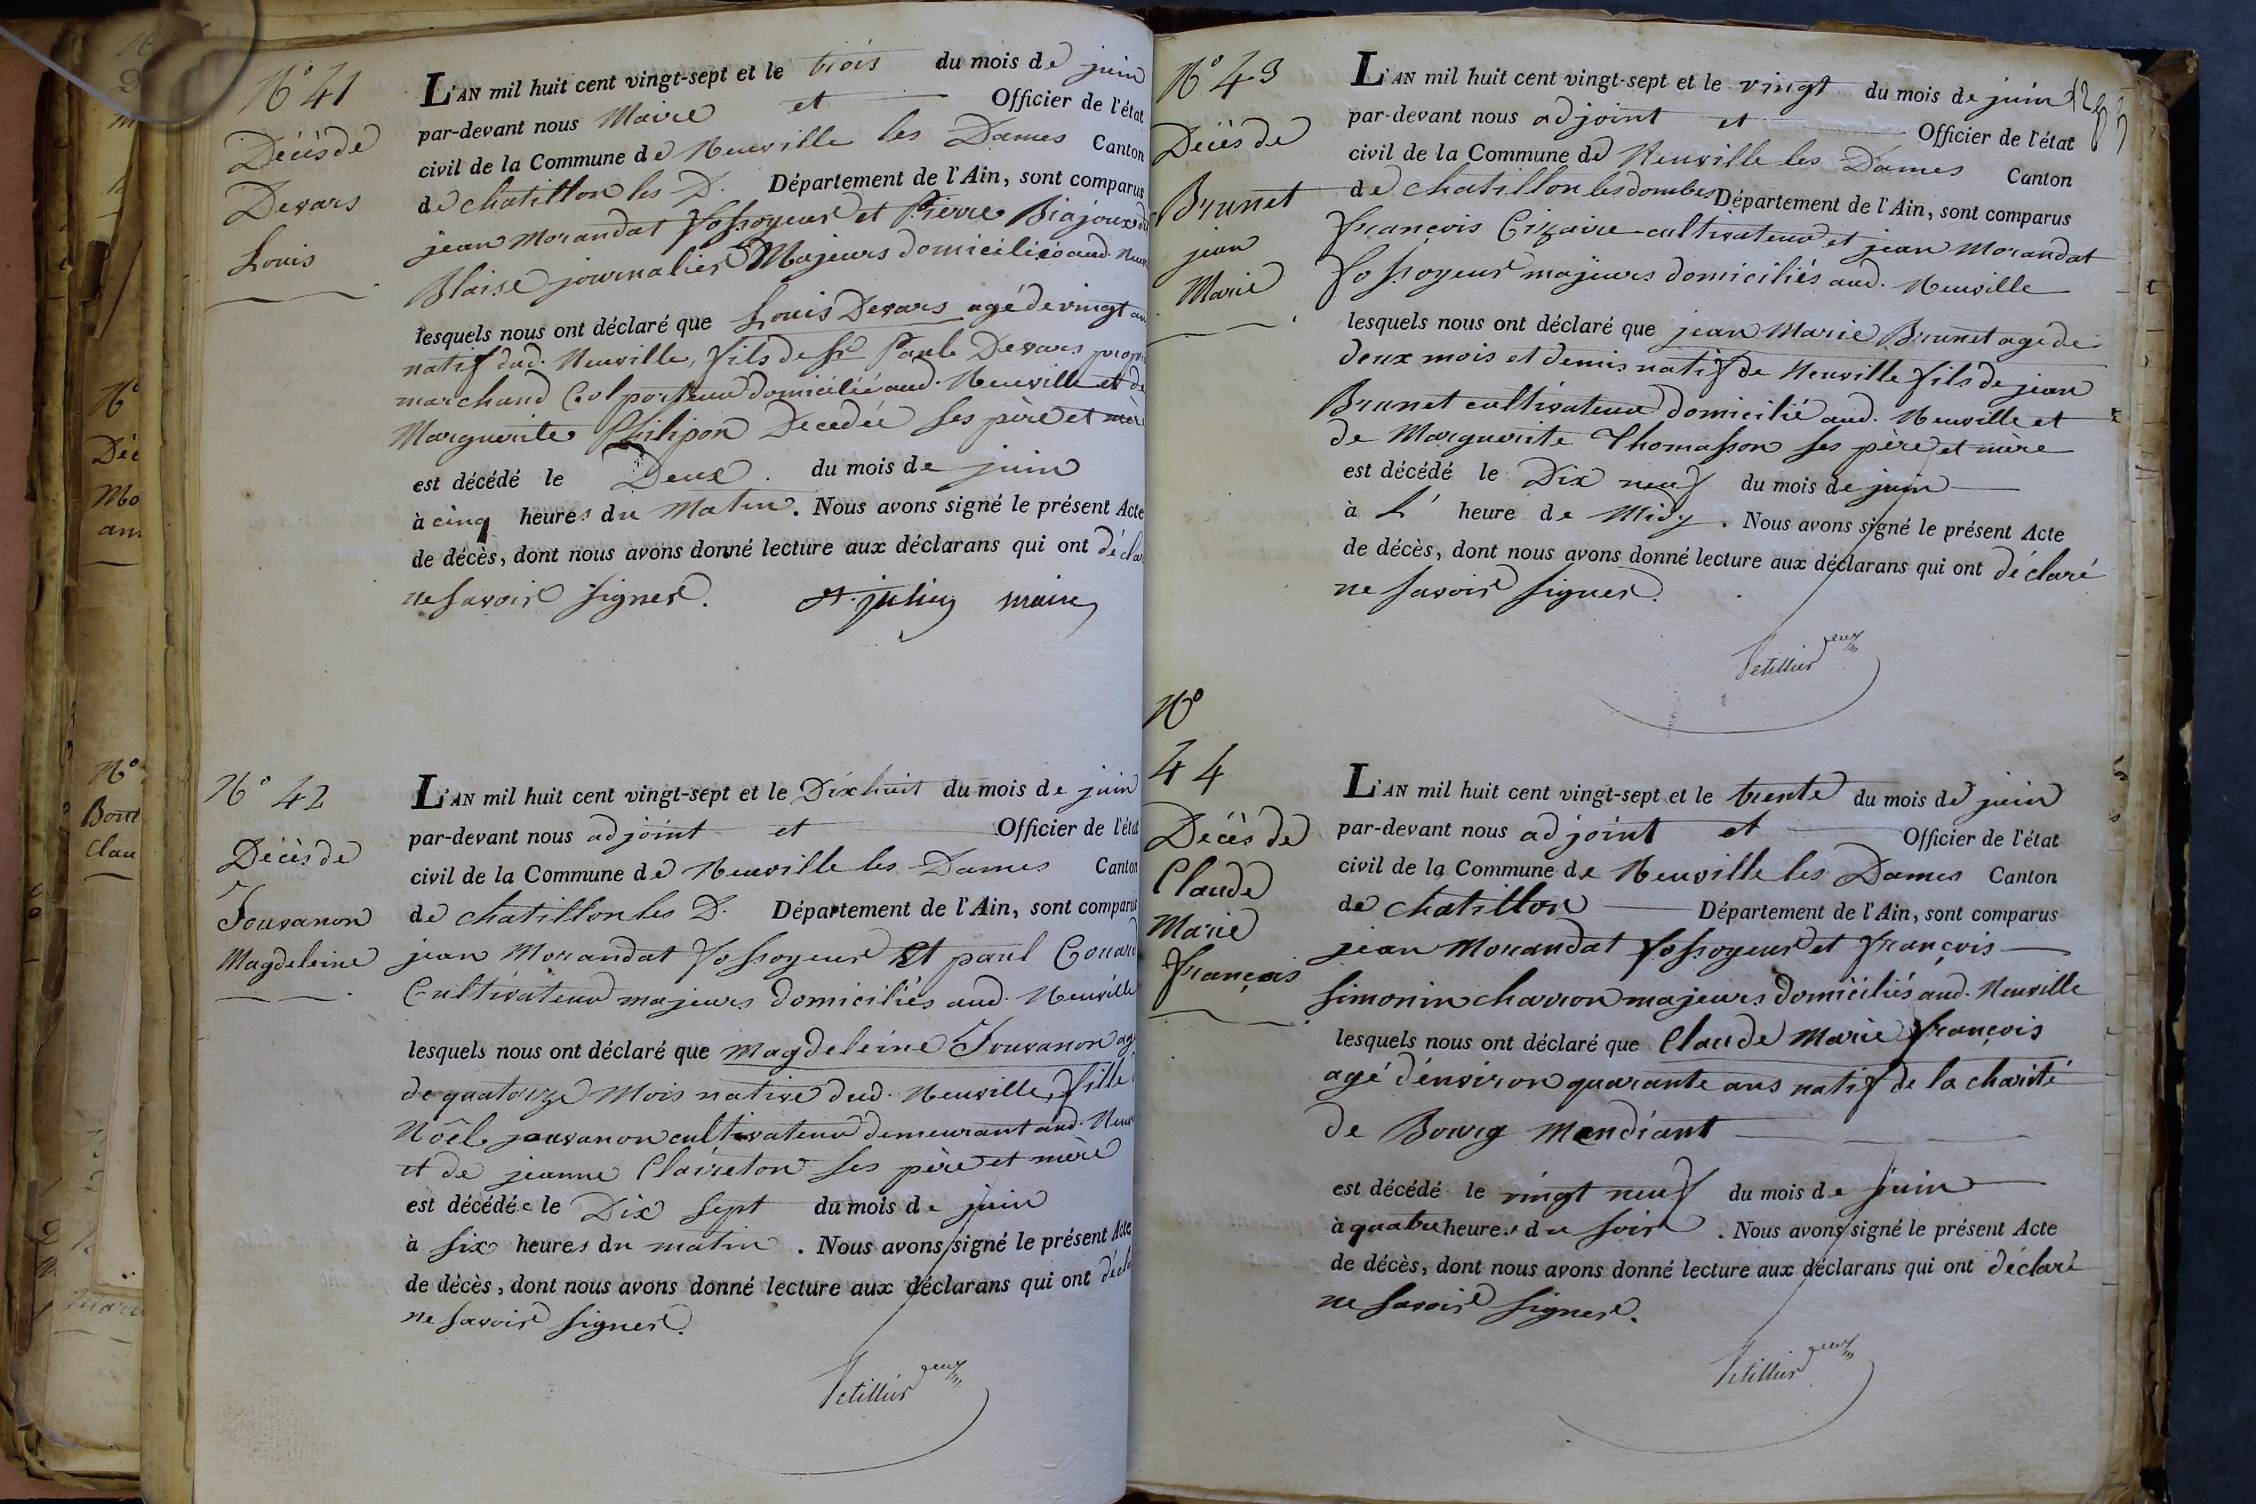 N° 41
Décès de
Devars
Louis
L'AN mil huit cent vingt-sept et le trois du mois de juin
par-devant nous Maire et Officier de l'état
civil de la Commune de Neuville les Dames Canton
de chatillon les D. Département de l'Ain, sont comparus
jean Morandat fossoyeur et Pierre Biajoux
Blaise journalier Majeurs domiciliés aud. Neuv
lesquels nous ont déclaré que Louis Devars agé de vingt an
natif dud. Neuville, fils de Sr Paul Devars propr
marchand Colporteur domicilié aud. Neuville et de
Marguerite Philipon Decedée ses père et mère
est décédé le Deux du mois de juin
à cinq heures du Matin. Nous avons signé le présent Acte
de décès, dont nous avons donné lecture aux déclarans qui ont décla
ne savoir signer. St. julien maire
N° 42
Décès de
Jouvanon
Magdeleine
L'AN mil huit cent vingt-sept et le Dixhuit du mois de juin
par-devant nous adjoint et Officier de l'état
civil de la Commune de Neuville les Dames Canton
de chatillon les D. Département de l'Ain, sont comparus
jean Morandat fossoyeur et paul Gouard
Cultivateur majeurs domiciliés aud. Neuville
lesquels nous ont déclaré que Magdeleine Jouvanon agé
de quatorze Mois native dud. Neuville, fille
Nôel jouvanon cultivateur demeurant aud. Neuv
et de jeanne Claireton ses père et mère
est décédée le Dix sept du mois de juin
à six heures du matin. Nous avons signé le présent Acte
de décès, dont nous avons donné lecture aux déclarans qui ont décla
ne savoir signer.
Petillier
N° 43
Décès de
Brunet
jean
Marie
L'AN mil huit cent vingt-sept et le vingt du mois de juin
par-devant nous adjoint et Officier de l'état
civil de la Commune de Neuville les Dames Canton
de chatillon les dombes Département de l'Ain, sont comparus
françois Cizaire cultivateur et jean Morandat
fossoyeur majeurs domiciliés aud. Neuville
lesquels nous ont déclaré que jean Marie Brunet agé de
deux mois et demis natif de Neuville fils de jean
Brunet cultivateur domicilié aud. Neuville et
de Marguerite Thomasson ses père et mère
est décédé le Dix neuf du mois de juin
à L' heure de Midy. Nous avons signé le présent Acte
de décès, dont nous avons donné lecture aux déclarans qui ont déclaré
ne savoir signer.
Petillier
N°
44
Décès de
Claude
Marie
françois
L'AN mil huit cent vingt-sept et le trente du mois de juin
par-devant nous adjoint et Officier de l'état
civil de la Commune de Neuville les Dames Canton
de chatillon Département de l'Ain, sont comparus
jean Morandat fossoyeur et françois
simonin charron majeurs domiciliés aud. Neuville
lesquels nous ont déclaré que Claude Marie françois
agé d'environ quarante ans natif de la charité
de Bourg Mendiant
est décédé le vingt neuf du mois de juin
à quatre heures du soir. Nous avons signé le présent Acte
de décès, dont nous avons donné lecture aux déclarans qui ont déclaré
ne savoir signer.
Petillier